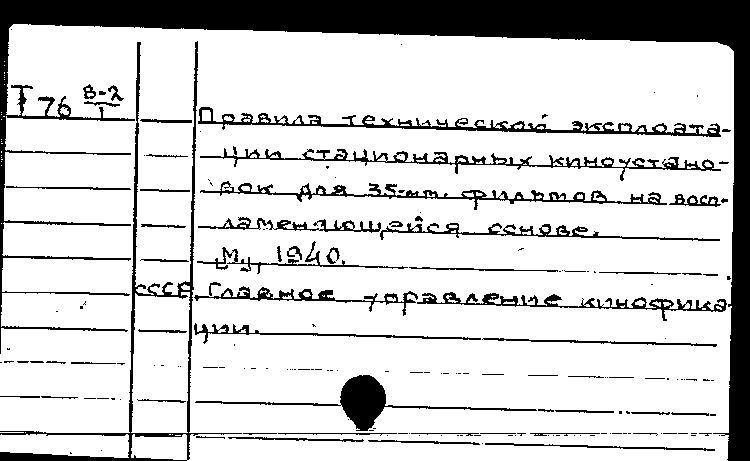 Т 76 В-2/1
Правила технической эксплоата-
ции стационарных киноустано-
вок для 35-мт. фильмов на восп-
ламеняющейся основе.
М., 1940.
СССР. Главное управление кинофика-
ции.